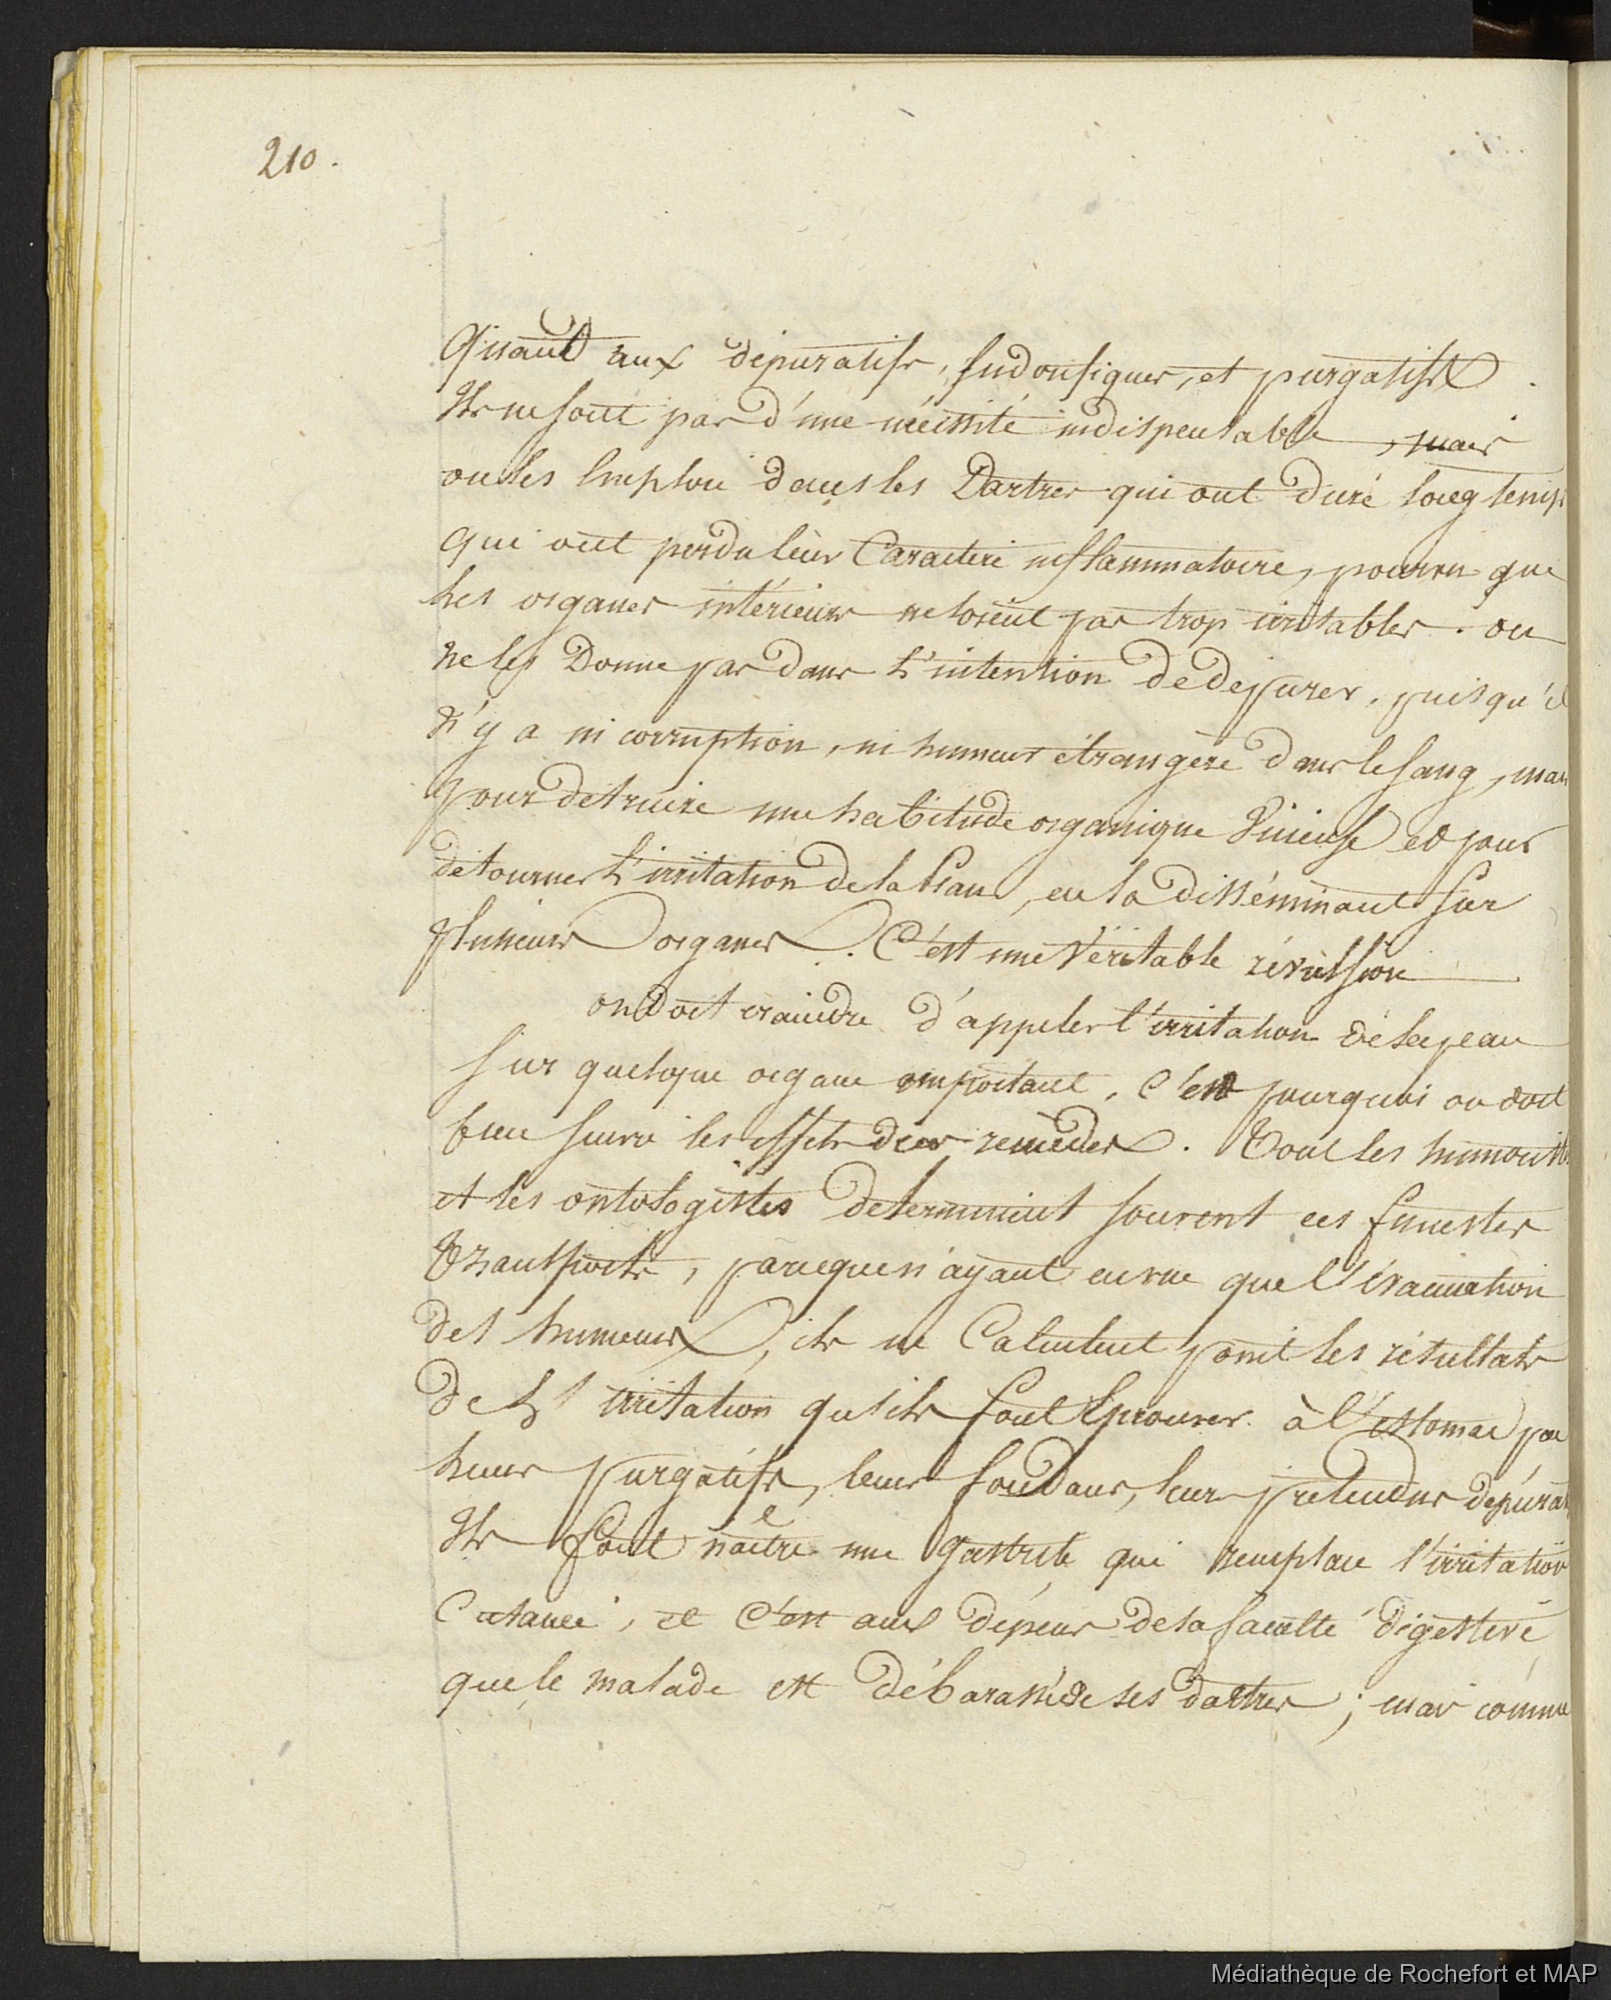 210.
Quant aux dépuratifs, sudorifiques, et purgatifs.
Ils ne sont pas d'une nécessité indispensable, mais
on les Emploi dans les Dartres qui ont duré longtemps
qui ont perdu leur Caractère inflammatoire, pourvu que
les organes intérieurs ne soient pas trop irritables. on
ne les Donne pas dans l'intention de dépurer, puisqu'il
n'y a ni corruption, ni humeur étrangère dans le sang, mais
pour détruire une habitude organique Vicieuse et pour
détourner l'irritation de la Peau, en la disséminant sur
plusieurs organes. C'est une Véritable révulsion
on Doit craindre d'appeler l'irritation de la peau
sur quelque organe important, C'est pourquoi on doit
bien suivre les effets des remèdes. Tout les humoristes
et les ontologistes determinent souvent ces funestes
Transports, parceque n'ayant en vue que l'évacuation
des humeurs, ils ne Calculent point les résultats
de l'irritation qu'ils font Eprouver à l'estomac par
leurs purgatifs, leurs fondans, leurs prétendus dépurat
Ils font naître une gastrite qui remplace l'irritation
Cutanée, et C'est aux dépens de la faculté digestive
que le malade est débarassé de ses dartres; mais comme
Médiathèque de Rochefort et MAP